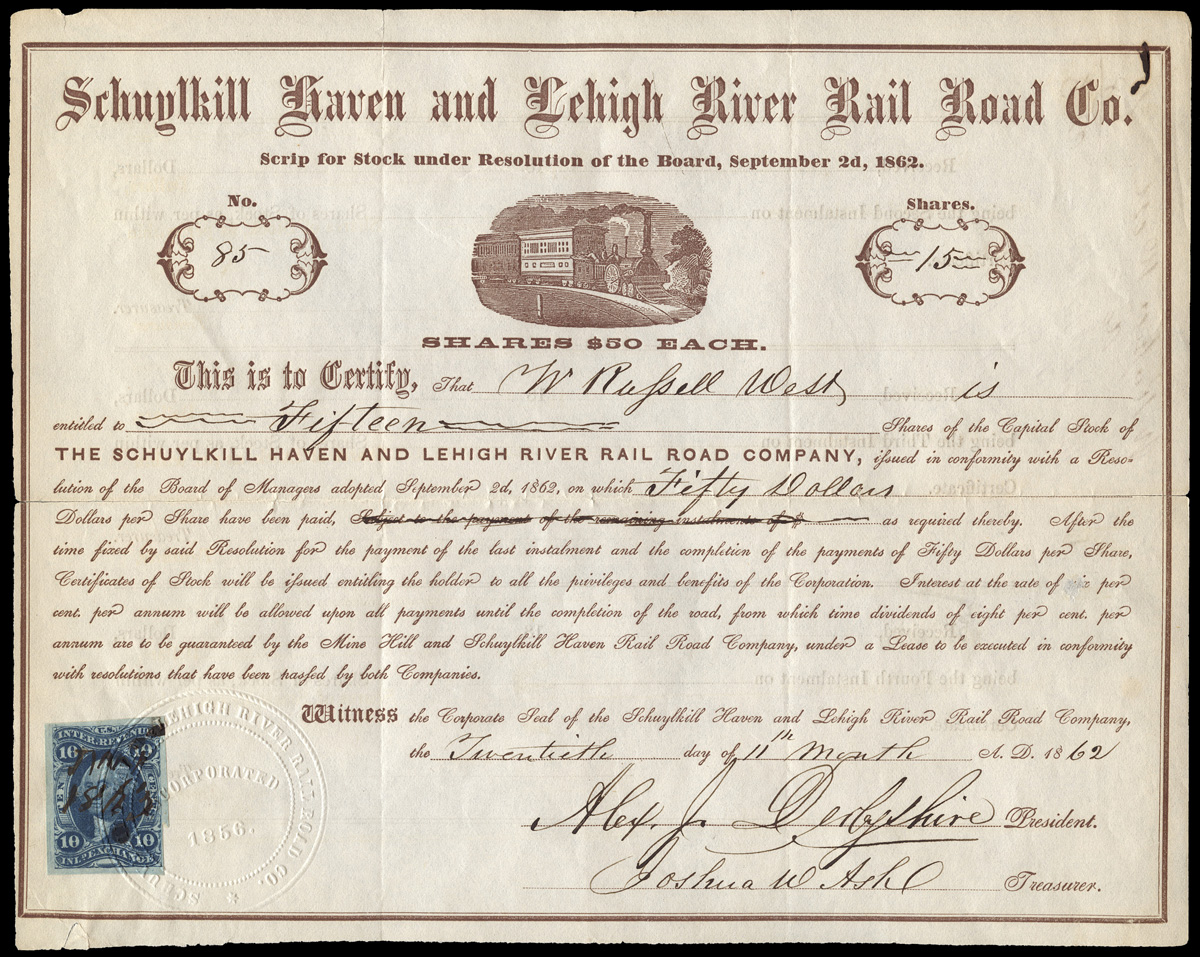 Schuylkill Haven and Lehigh River Rail Road Co.
Scrip for Stock under Resolution of the Board, September 2d, 1862.
No.
85
Shares.
15
SHARES $50 EACH.
This is to Certify, That W Russell West is
entitled to Fifteen Shares of the Capital Stock of
THE SCHUYLKILL HAVEN AND LEHIGH RIVER RAIL ROAD COMPANY, issued in conformity with a Reso-
lution of the Board of Managers adopted September 2d, 1862, on which Fifty Dollars
Dollars per Share have been paid, Subject to the payment of the remaining instalments of $ as required thereby. After the
time fixed by said Resolution for the payment of the last instalment and the completion of the payments of Fifty Dollars per Share,
Certificates of Stock will be issued entitling the holder to all the privileges and benefits of the Corporation. Interest at the rate of six per
cent. per annum will be allowed upon all payments until the completion of the road, from which time dividends of eight per cent. per
annum are to be guaranteed by the Mine Hill and Schuylkill Haven Rail Road Company, under a Lease to be executed in conformity
with resolutions that have been passed by both Companies.
Witness the Corporate Seal of the Schuylkill Haven and Lehigh River Rail Road Company,
the Twentieth day of 11th Month A. D. 1862
Alex. J. Derbyshire President.
Joshua W Ash Treasurer.
U.S.
INTER. REVENUE
10 10
TEN CENTS
10 10
INL. EXCHANGE
LEHIGH RIVER RAIL ROAD CO.
INCORPORATED
1856.